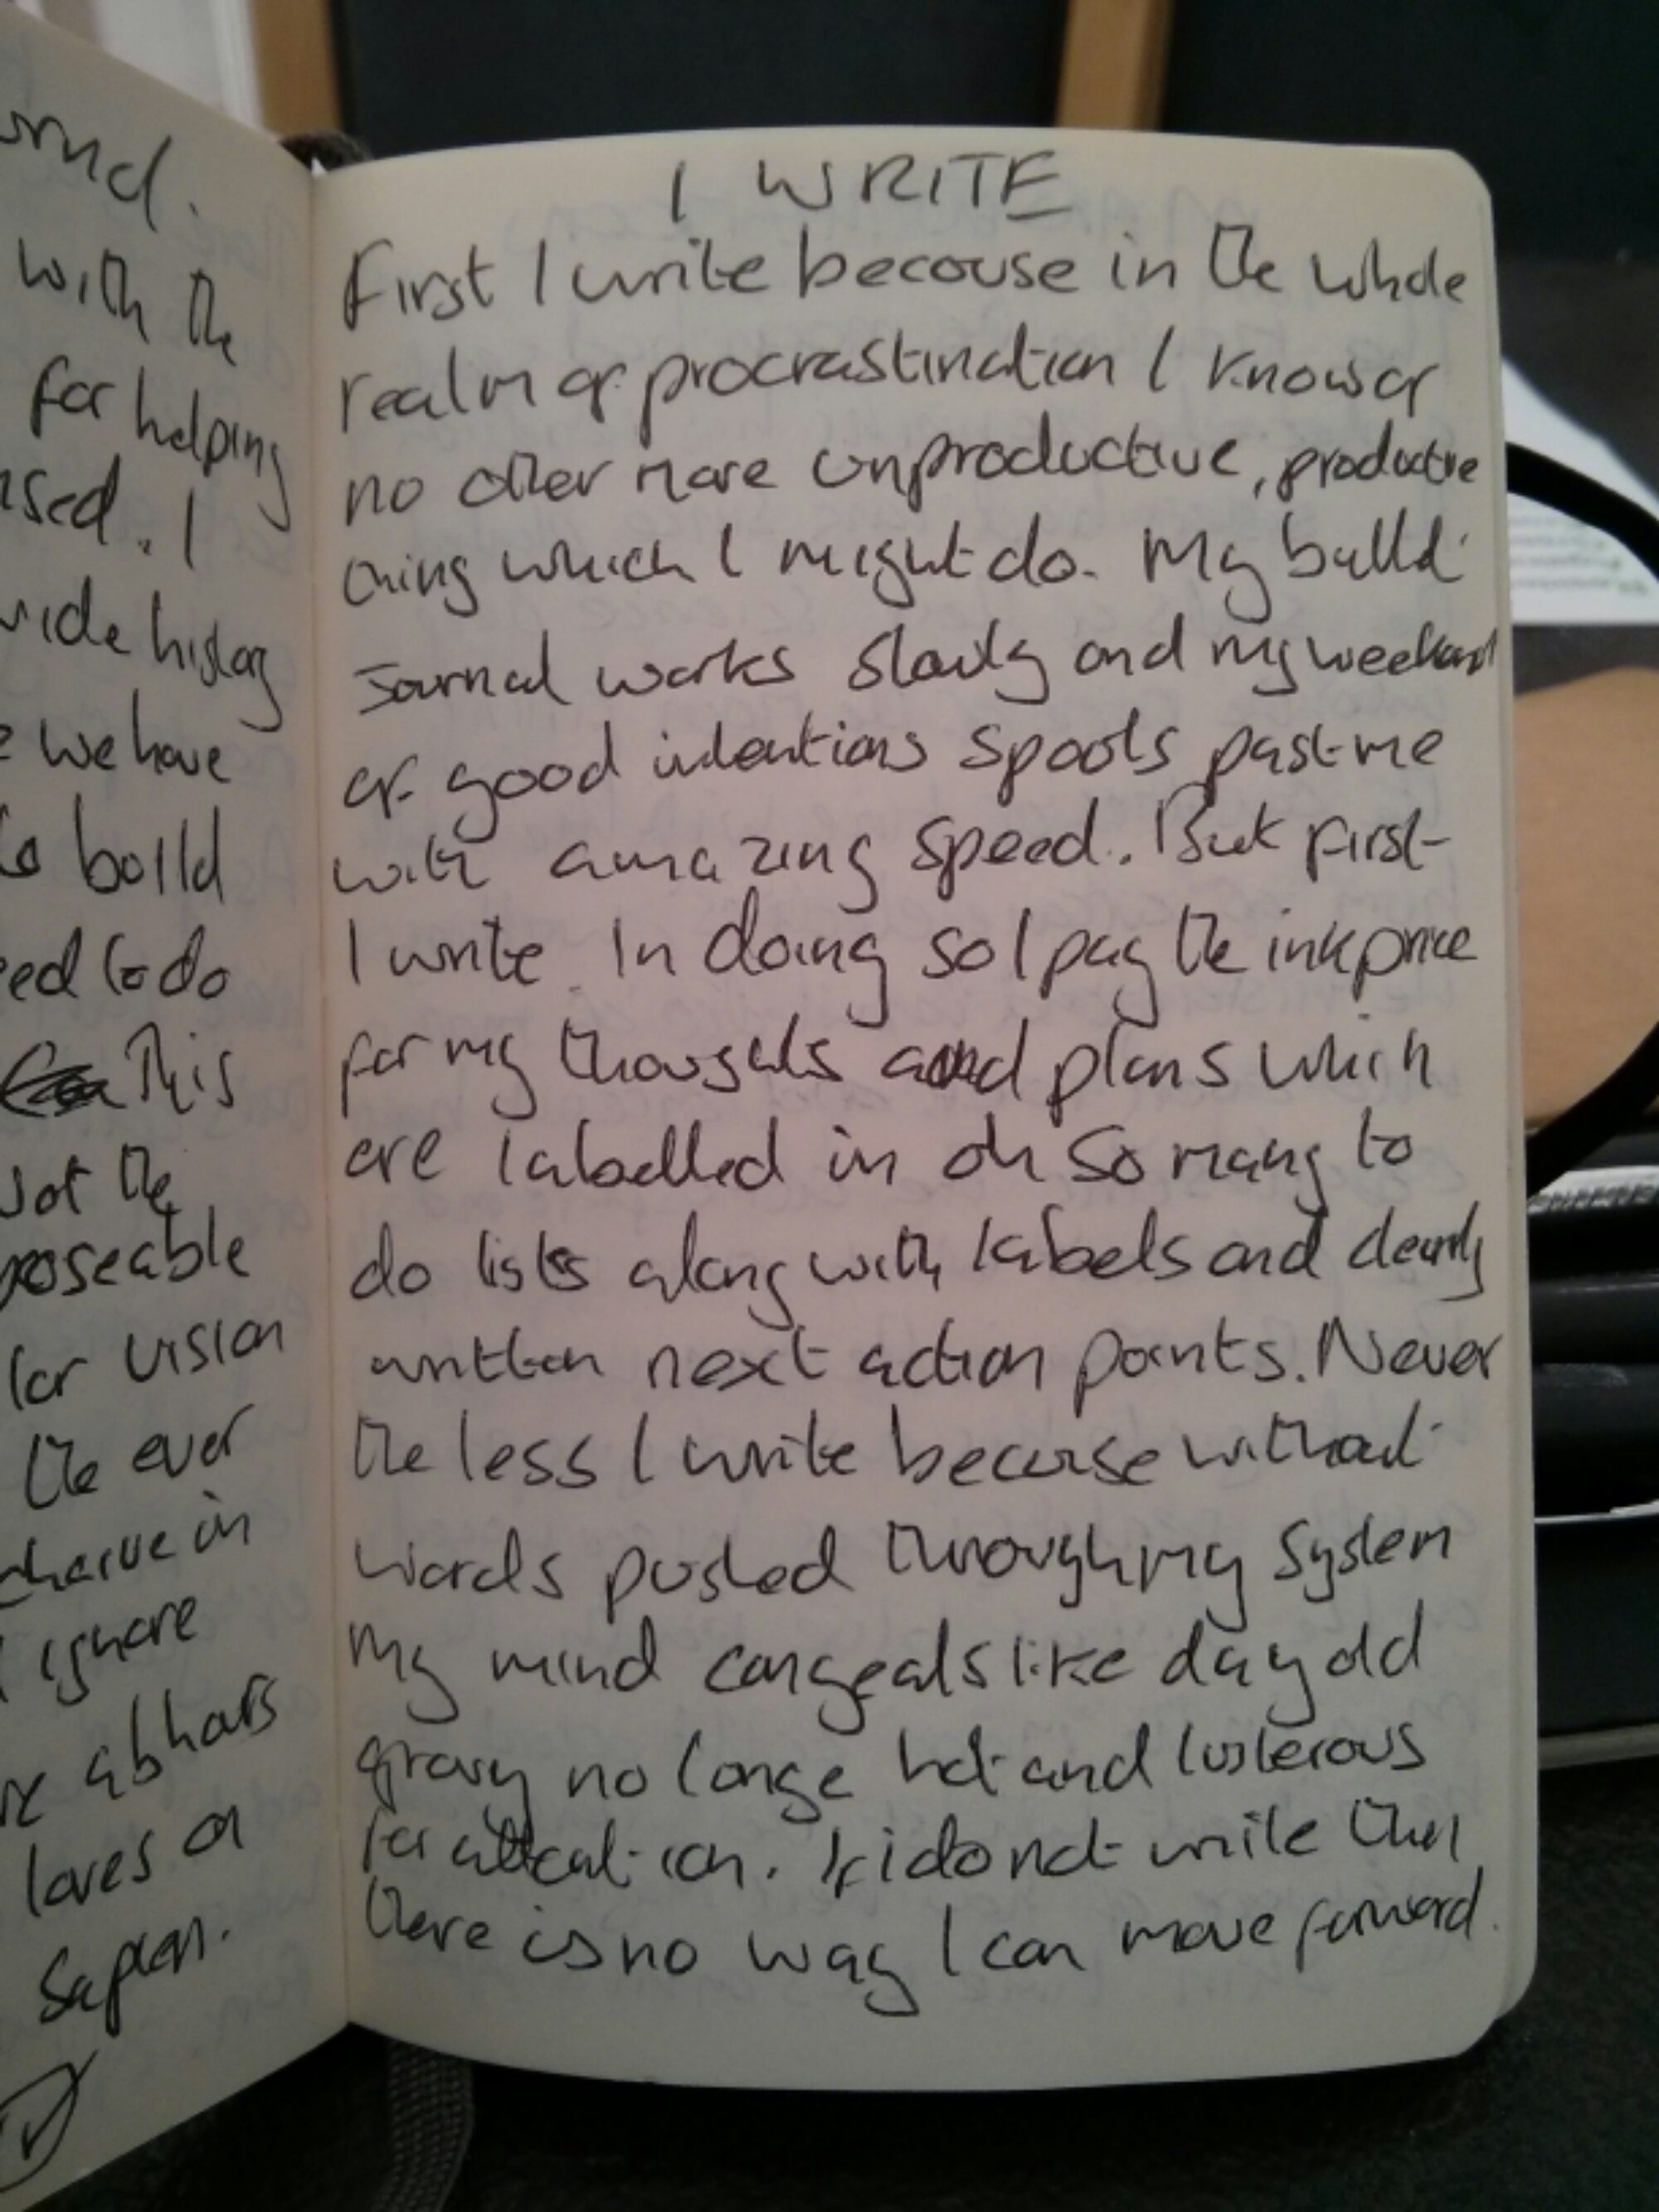 ornd.
with the
for helping
sed. I
vide history
we have
to build
eed to do
This
Not the
poseable
for vision
the ever
in
ignore
abhors
loves a
Sapien.
I WRITE
First I write becouse in the whole
realm of procrastination I know of
no other more unproductive, productive
thing which I might do. My bullet
Journal works slowly and my weekend
of good intentions spools past me
with amazing speed. But first
I write. In doing so I pay the ink price
for my thoughts and plans which
are labelled in oh so many to
do lists along with labels and clearly
written next action points. Never
the less I write because without
words pushed through my system
my mind congeals like day old
gravy no longe hot and lusterous
for attention. If i do not write then
there is no way I can move forward.